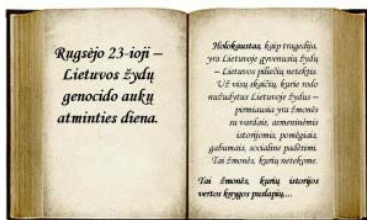 Rugsėjo 23-ioji –
Lietuvos žydų
genocido aukų
atminties diena.
Holokaustas, kaip tragedija,
yra Lietuvoje gyvenusių žydų
– Lietuvos piliečių netektis.
Už visų skaičių, kurie rodo
nužudytus Lietuvoje žydus –
pirmiausia yra žmonės
su vardais, asmeninėmis
istorijomis, pomėgiais,
gabumais, socialine padėtimi.
Tai žmonės, kurių netekome.
Tai žmonės, kurių istorijos
vertos knygos puslapių....